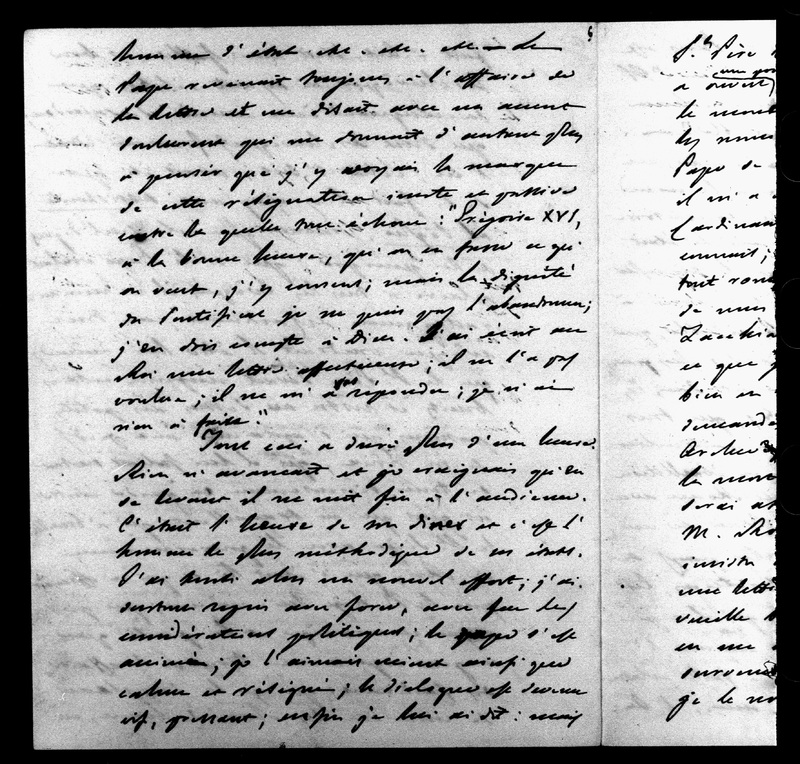 homme d'état etc. etc. etc. — le
Pape revenait toujours à l'affaire de
la lettre et me disait avec un accent
douloureux qui me donnait d'autant plus
à penser que j'y voyais la marque
de cette résignation inerte et passive
contre la quelle tout échoue: "Grégoire XVI,
à la bonne heure, qu'on en fasse ce qu'
on veut, j'y consens; mais la dignité
du Pontificat je ne puis pas l'abandonner;
j'en dois compte à Dieu. J'ai écrit au
Roi une lettre affectueuse; il ne l'a pas
voulue; il ne m'a pas répondu; je n'ai
rien à faire."
Tout ceci a duré plus d'une heure.
Rien n'avançait et je craignais qu'en
se levant il ne mît fin à l'audience.
C'était l'heure de son diner et c'est l'
homme le plus méthodique de ses états.
J'ai tenté alors un nouvel effort; j'ai
surtout repris avec force, avec feu les
considérations politiques; le pape s'est
animé; je l'aimais mieux ainsi que
calme et résigné; le dialogue est devenu
vif, pressant; enfin je lui ai dit: mais
5
St. Père
a ouvert
le
les
Pape de
il m'a
Cardinaux
connait;
tout
de nous
ce que
bien
demande
la
serai
M.
insista
une lettre
veuille
en me
je le